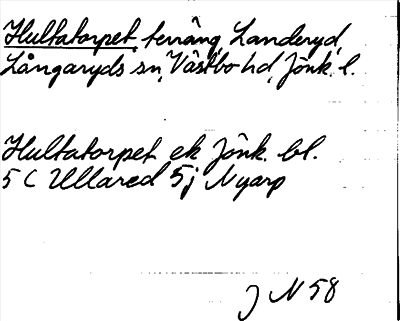 Hultatorpet, terräng, Landeryd,
Långaryds sn, Västbo hd, Jönk. l.
Hultatorpet ek Jönk. bl.
5 C Ullared 5j Nyarp
J N 58